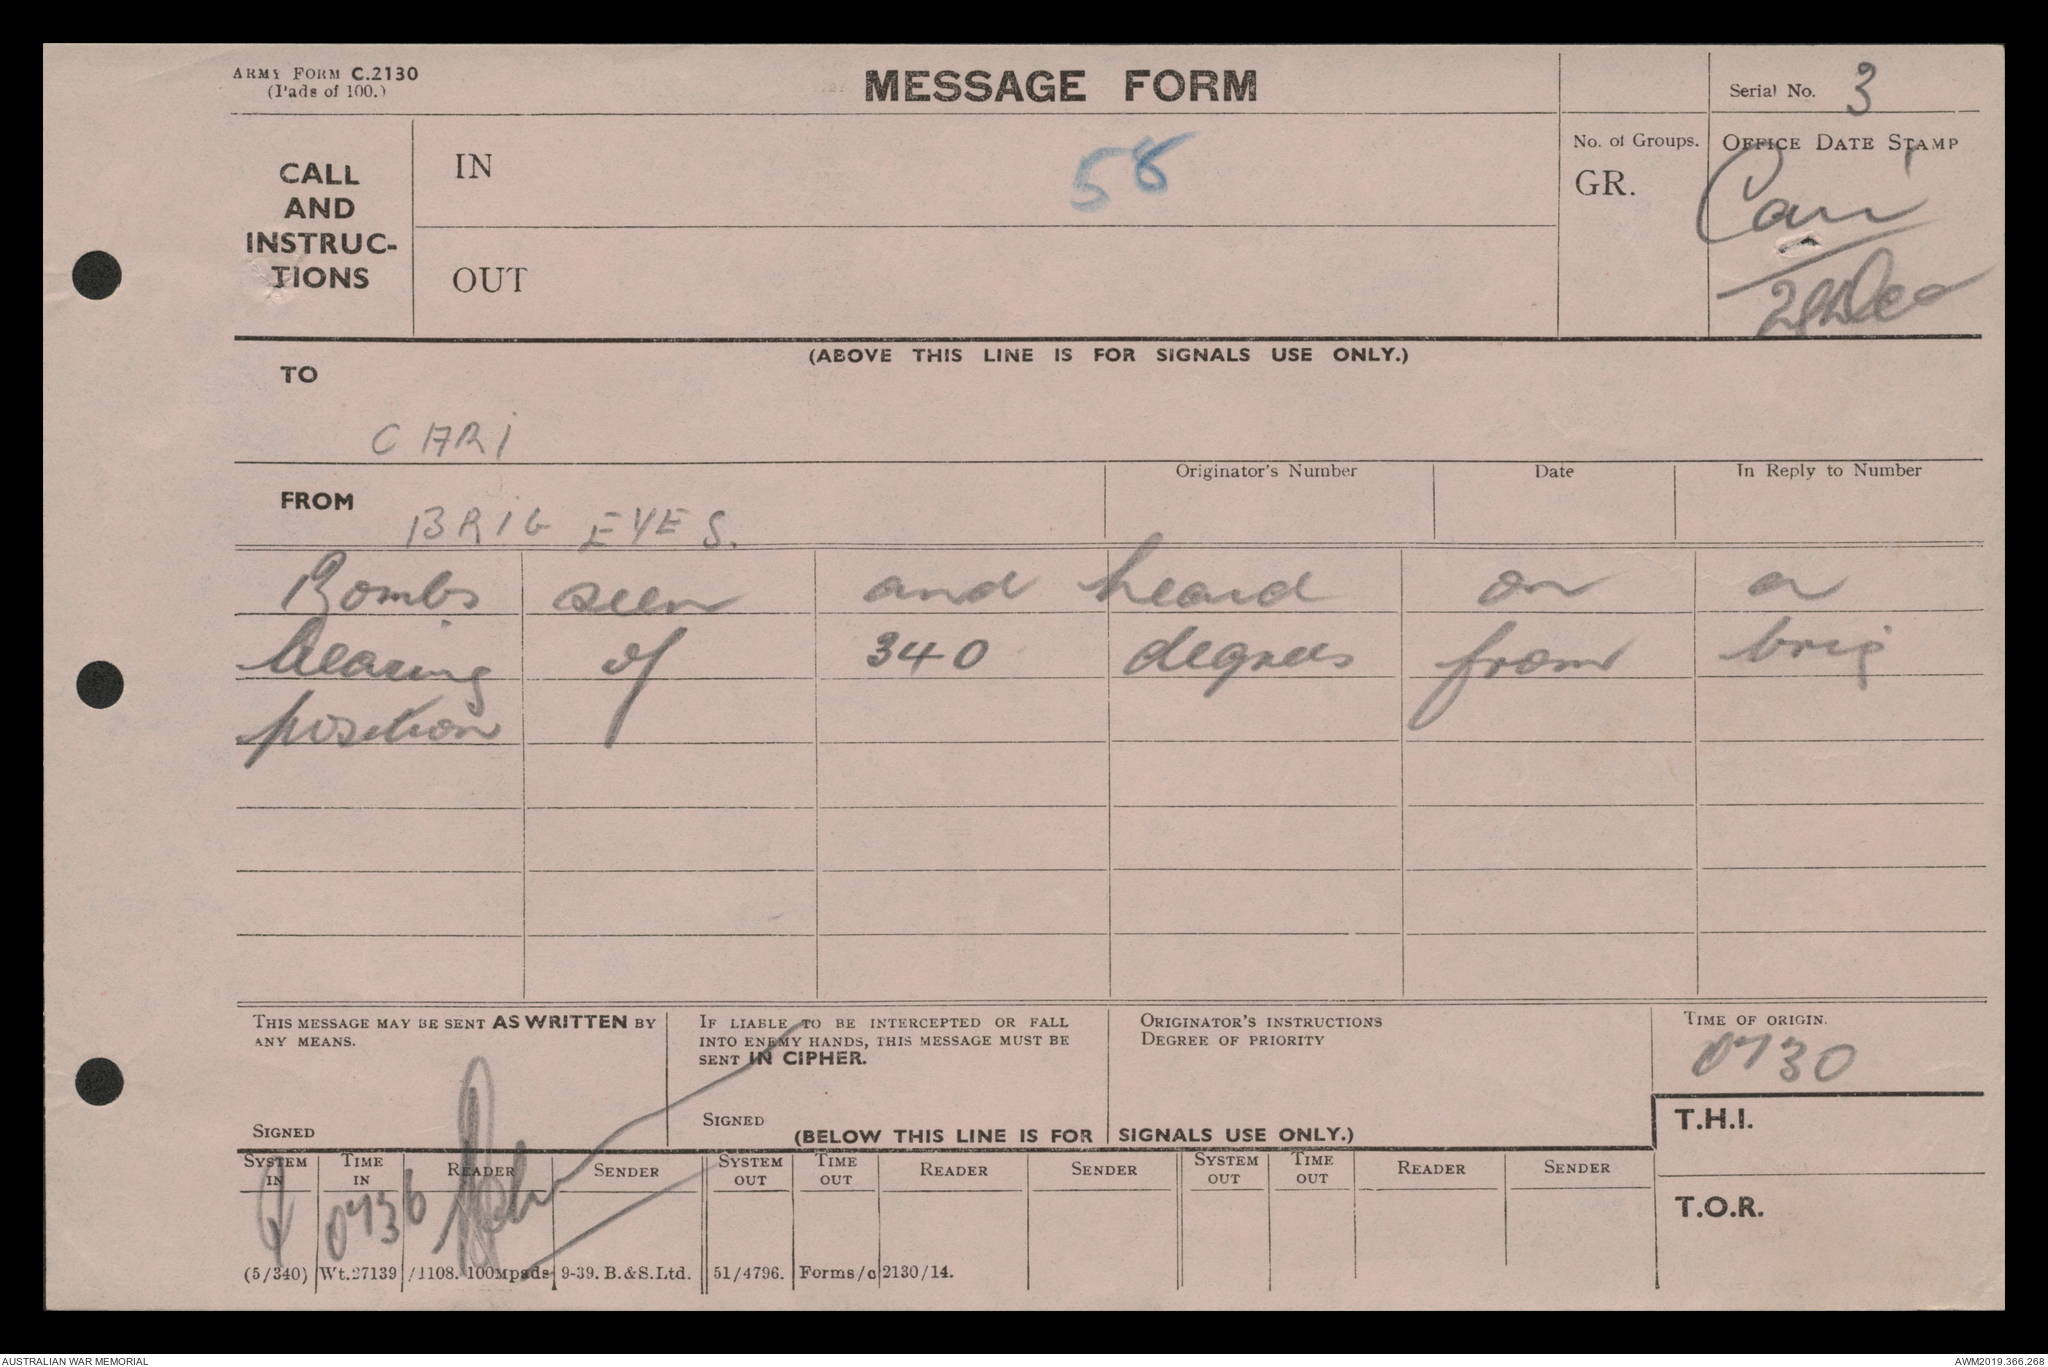 ARMY FORM C.2130
(Pads of 100.)
MESSAGE FORM
Serial No. 3
CALL
AND
INSTRUC-
TIONS
IN
58
No. of Groups.
GR.
OFFICE DATE STAMP
Cari
Dec
OUT
(ABOVE THIS LINE IS FOR SIGNALS USE ONLY.)
TO
CARI
FROM
BRIG EYES.
Originator's Number
Date
In Reply to Number
Bombs seen and heard on a
bearing of 340 degrees from brig
position
THIS MESSAGE MAY BE SENT AS WRITTEN BY
ANY MEANS.
SIGNED
IF LIABLE TO BE INTERCEPTED OR FALL
INTO ENEMY HANDS, THIS MESSAGE MUST BE
SENT IN CIPHER.
SIGNED
ORIGINATOR'S INSTRUCTIONS
DEGREE OF PRIORITY
TIME OF ORIGIN.
0730
(BELOW THIS LINE IS FOR SIGNALS USE ONLY.)
T.H.I.
T.O.R.
SYSTEM IN TIME IN READER SENDER SYSTEM OUT TIME OUT READER SENDER SYSTEM OUT TIME OUT READER SENDER
0736
(5/340) Wt.27139 /1108. 100Mpads 9-39. B.&S.Ltd. 51/4796. Forms/c2130/14.
AUSTRALIAN WAR MEMORIAL
AWM2019.366.268